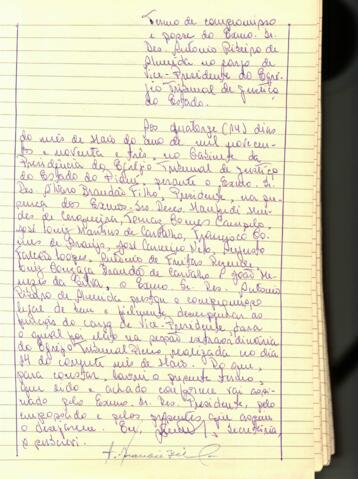 Termo de compromisso
e posse do Exmo. Sr.
Des. Antonio Ribeiro de
Almeida no cargo de
Vice-Presidente do Egré-
gio Tribunal de Justiça
do Estado.
Aos quatorze (14) dias
do mês de Maio do ano de mil novecen-
tos e noventa e três, no Gabinete da
Presidência do Egrégio Tribunal de Justiça
do Estado do Piauí, perante o Exmo. Sr.
Des. Álvaro Brandão Filho, Presidente, na pre-
sença dos Exmos. Srs. Deses. Manfredi Men-
des de Cerqueira, Tomaz Gomes Campelo,
José Luiz Martins de Carvalho, Francisco Go-
mes de Araújo, José Carneiro Neto, Augusto
Falcão Lopes, Antonio de Freitas Rezende,
Luiz Gonzaga Brandão de Carvalho e João Me-
nezes da Silva, o Exmo. Sr. Des. Antonio
Ribeiro de Almeida prestou o compromisso
legal de bem e fielmente desempenhar as
funções do cargo de Vice-Presidente, para
o qual foi eleito na sessão extraordinária
do Egrégio Tribunal Pleno, realizada no dia
14 do corrente mês de Maio. Do que,
para constar, lavrei o presente termo,
que lido e achado conforme vai assi-
nado pelo Exmo. Sr. Des. Presidente, pelo
empossado e pelos presentes que assim
o desejarem. Eu, Secretária,
o subscrevi.